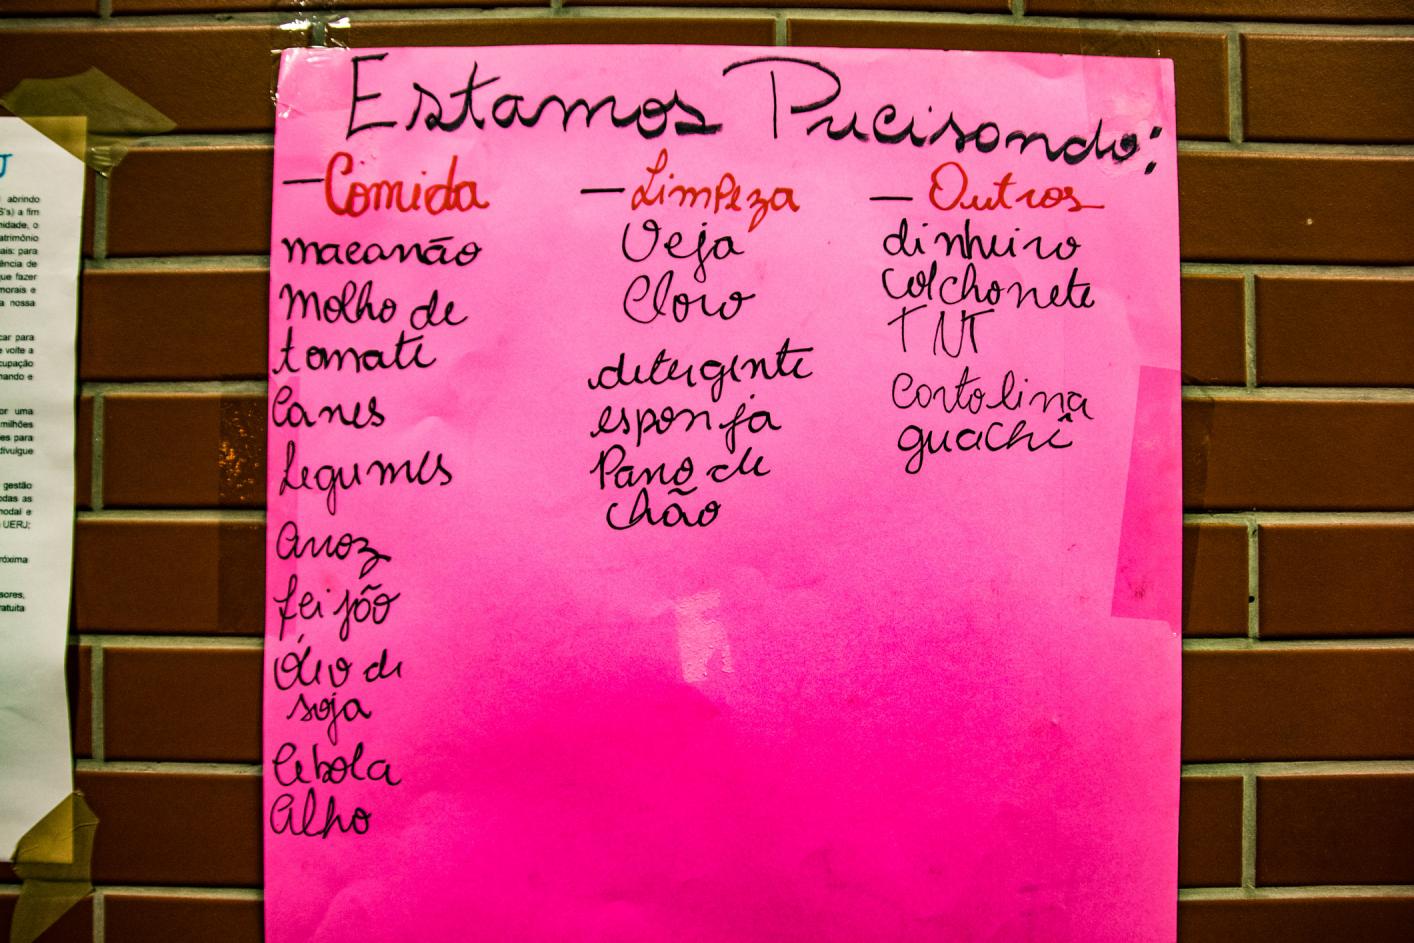 Estamos Precisando:
—Comida
macarrão
Molho de
tomate
Carnes
Legumes
Arroz
feijão
Óleo de
soja
Cebola
Alho
—Limpeza
Veja
Cloro
detergente
esponja
Pano de
chão
—Outros
dinheiro
Colchonete
TNT
Cartolina
guachê
abrindo
a fim
nidade, o
atrimônio
ais: para
ência de
que fazer
morais e
a nossa
car para
e volte a
cupação
nando e
or uma
milhões
es para
divulgue
gestão
odas as
nodal e
UERJ;
róxima
sores,
ratuita